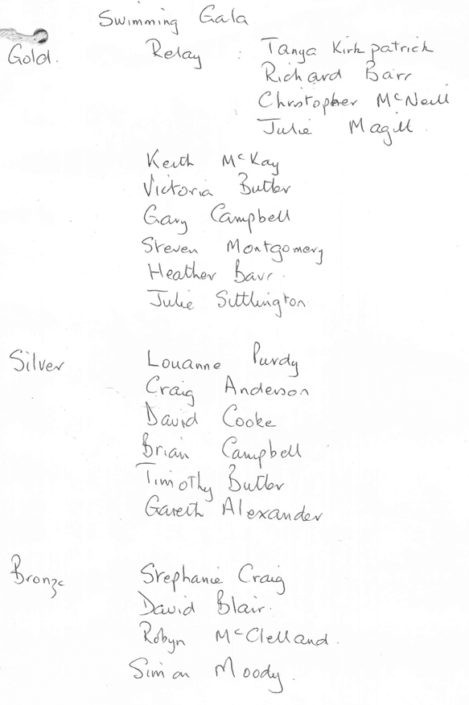 Swimming Gala
Gold. Relay : Tanya Kirkpatrick
Richard Barr
Christopher McNeill
Julie Magill.
Keith McKay
Victoria Butler
Gary Campbell
Steven Montgomery
Heather Barr.
Julie Suttlington
Silver Louanne Purdy
Craig Anderson
David Cooke
Brian Campbell
Timothy Butler
Gareth Alexander
Bronze Stephanie Craig
David Blair.
Robyn McClelland.
Simon Moody.